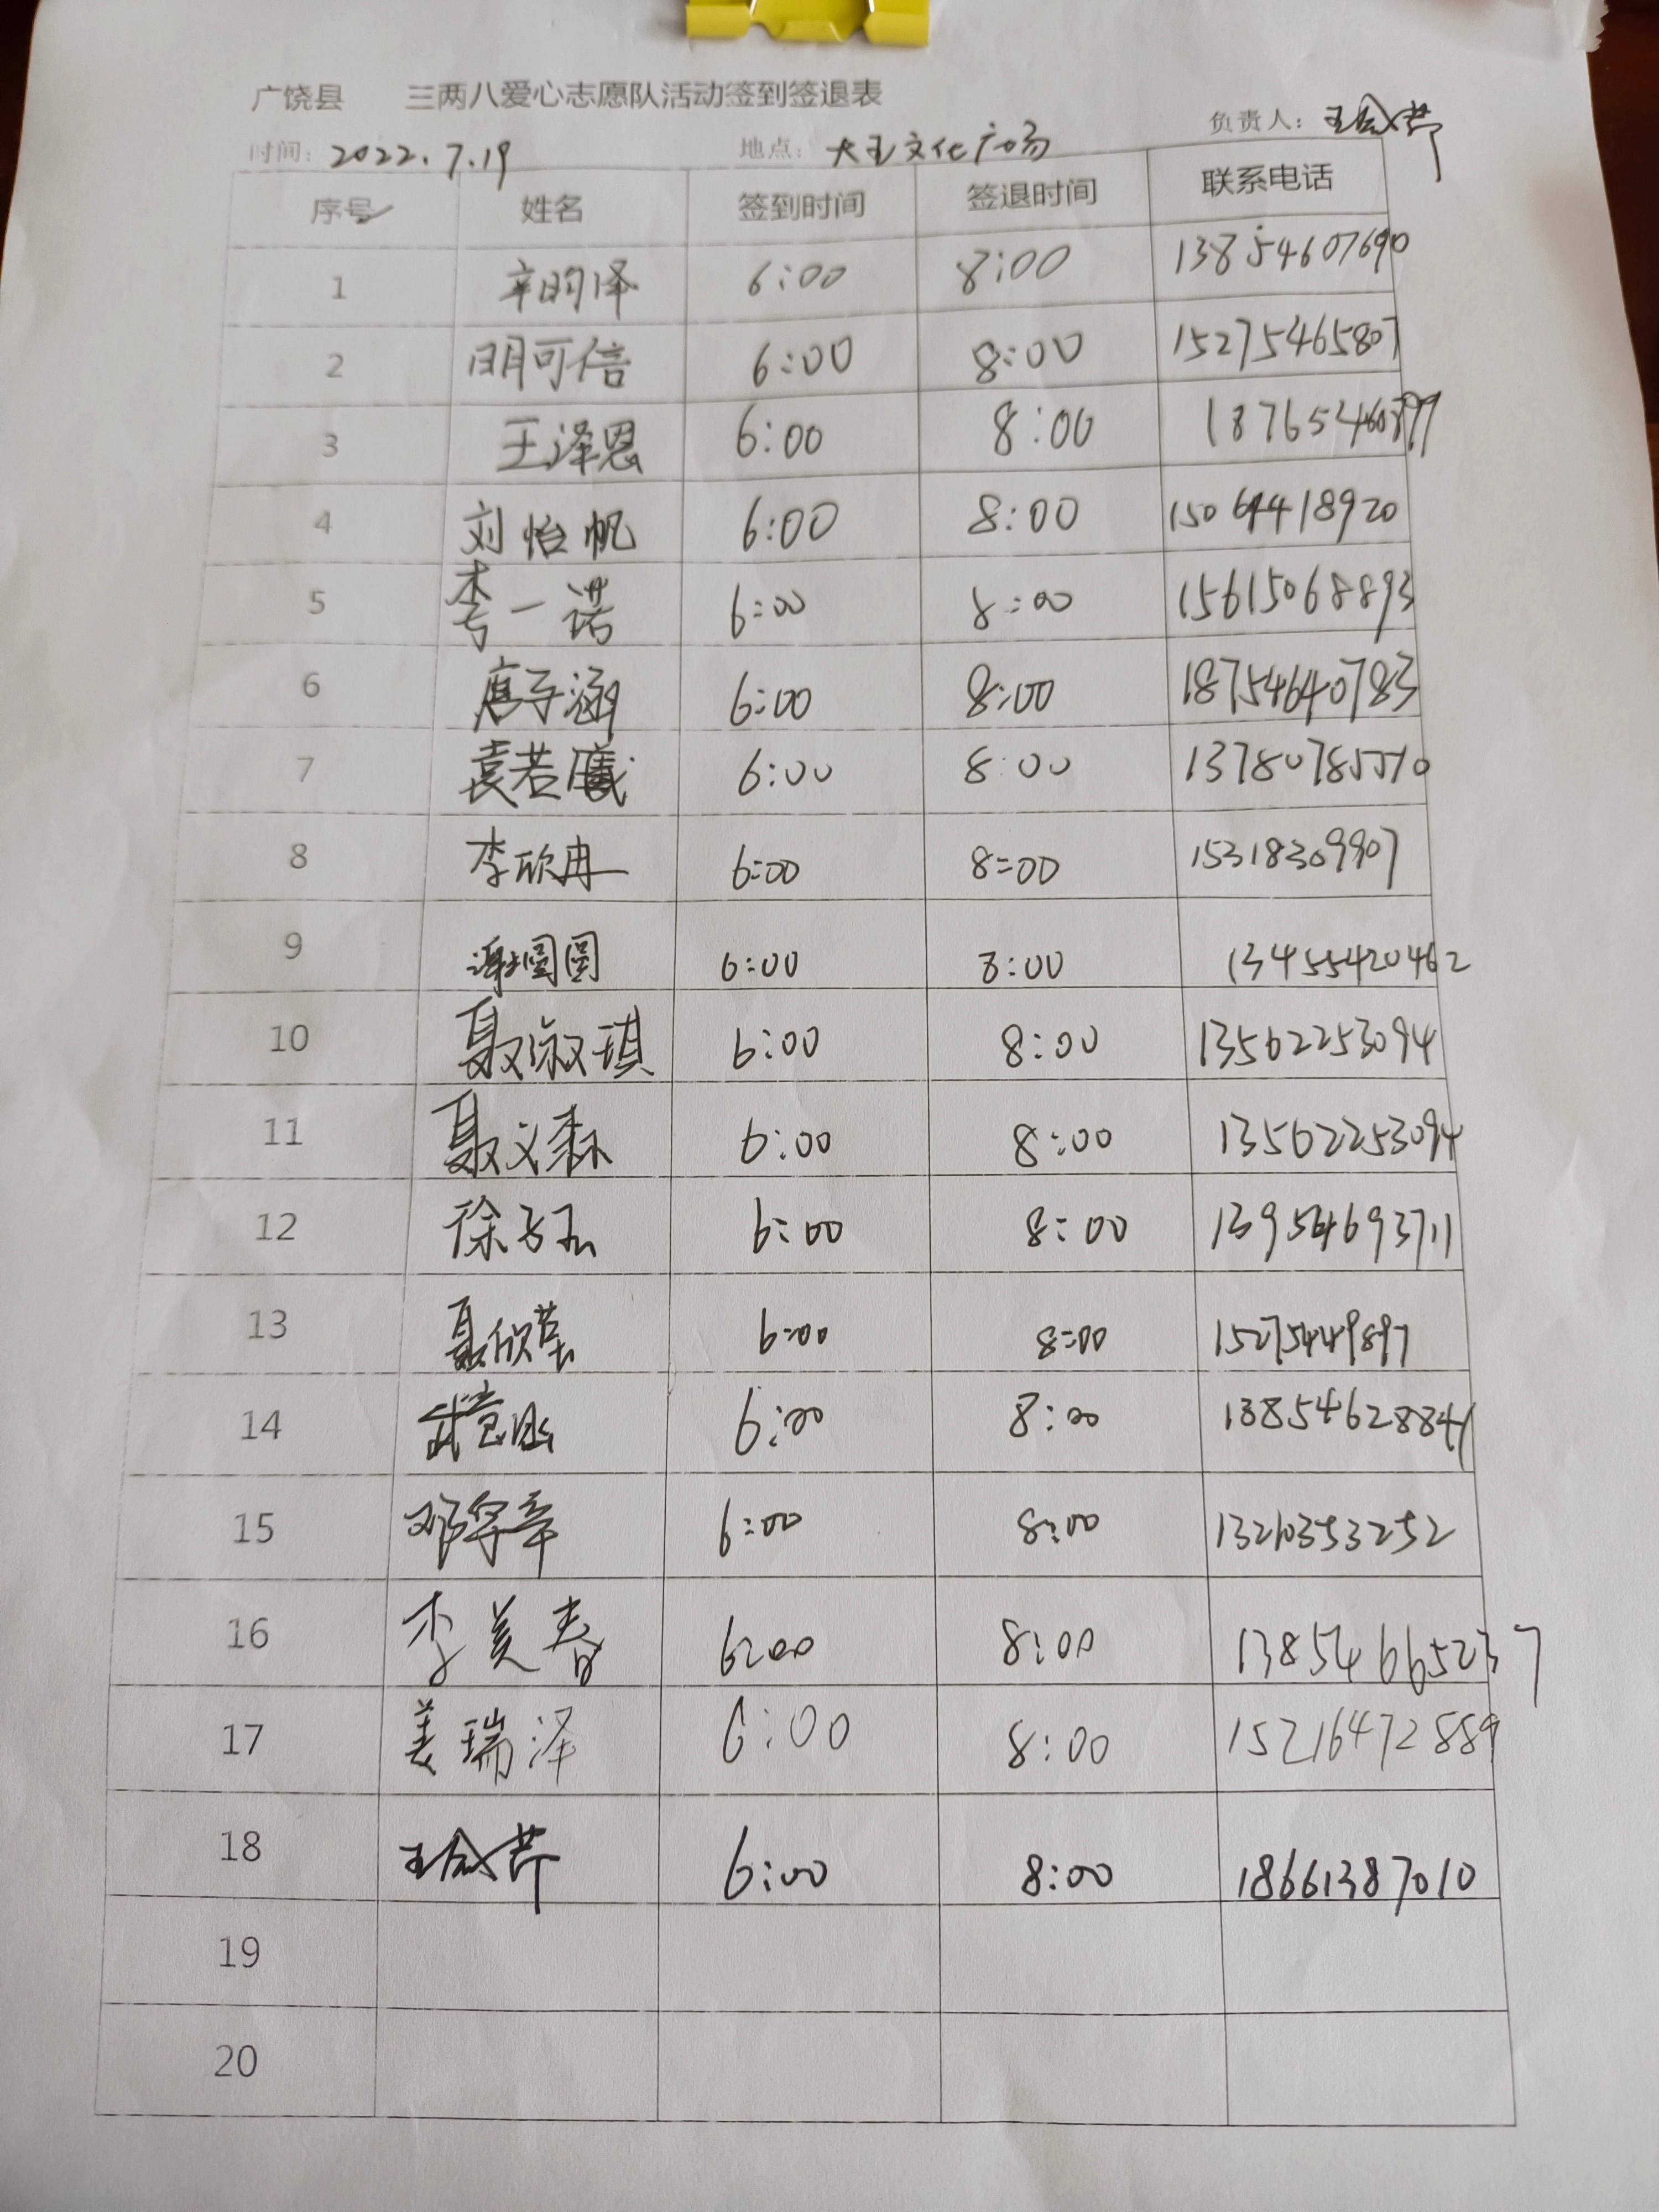 广饶县 三两八爱心志愿队活动签到签退表
时间：2022.7.19 地点：大王文化广场 负责人：王会芹
序号 姓名 签到时间 签退时间 联系电话
1 辛昀泽 6:00 8:00 13854607690
2 明可信 6:00 8:00 15275465807
3 王泽恩 6:00 8:00 18765460899
4 刘怡帆 6:00 8:00 15064418920
5 李一诺 6:00 8:00 15615068893
6 唐子涵 6:00 8:00 18754640783
7 袁若曦 6:00 8:00 13780785570
8 李欣冉 6:00 8:00 15318309907
9 谢圆圆 6:00 8:00 13455420462
10 聂淑琪 6:00 8:00 13562253094
11 聂文森 6:00 8:00 13562253094
12 徐子玉 6:00 8:00 13954693711
13 聂欣莹 6:00 8:00 15275449897
14 6:00 8:00 13854628841
15 邓宇辛 6:00 8:00 13210353252
16 李美春 6:00 8:00 13854665237
17 姜瑞泽 6:00 8:00 15216472889
18 王会芹 6:00 8:00 18661387010
19
20